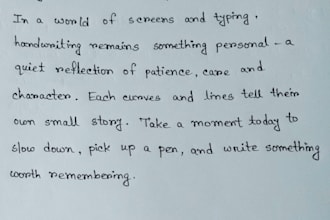 In a world of screens and typing,
handwriting remains something personal - a
quiet reflection of patience, care and
character. Each curves and lines tell their
own small story. Take a moment today to
slow down, pick up a pen, and write something
worth remembering.